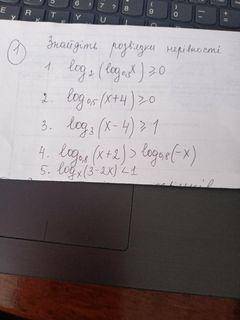 1 Знайдіть розвязки нерівності
1. log₂(log₀,₅x)≥0
2. log₀,₅(x+4)≥0
3. log₃(x-4)≥1
4. log₀,₈(x+2)>log₀,₈(-x)
5. logₓ(3-2x)<1